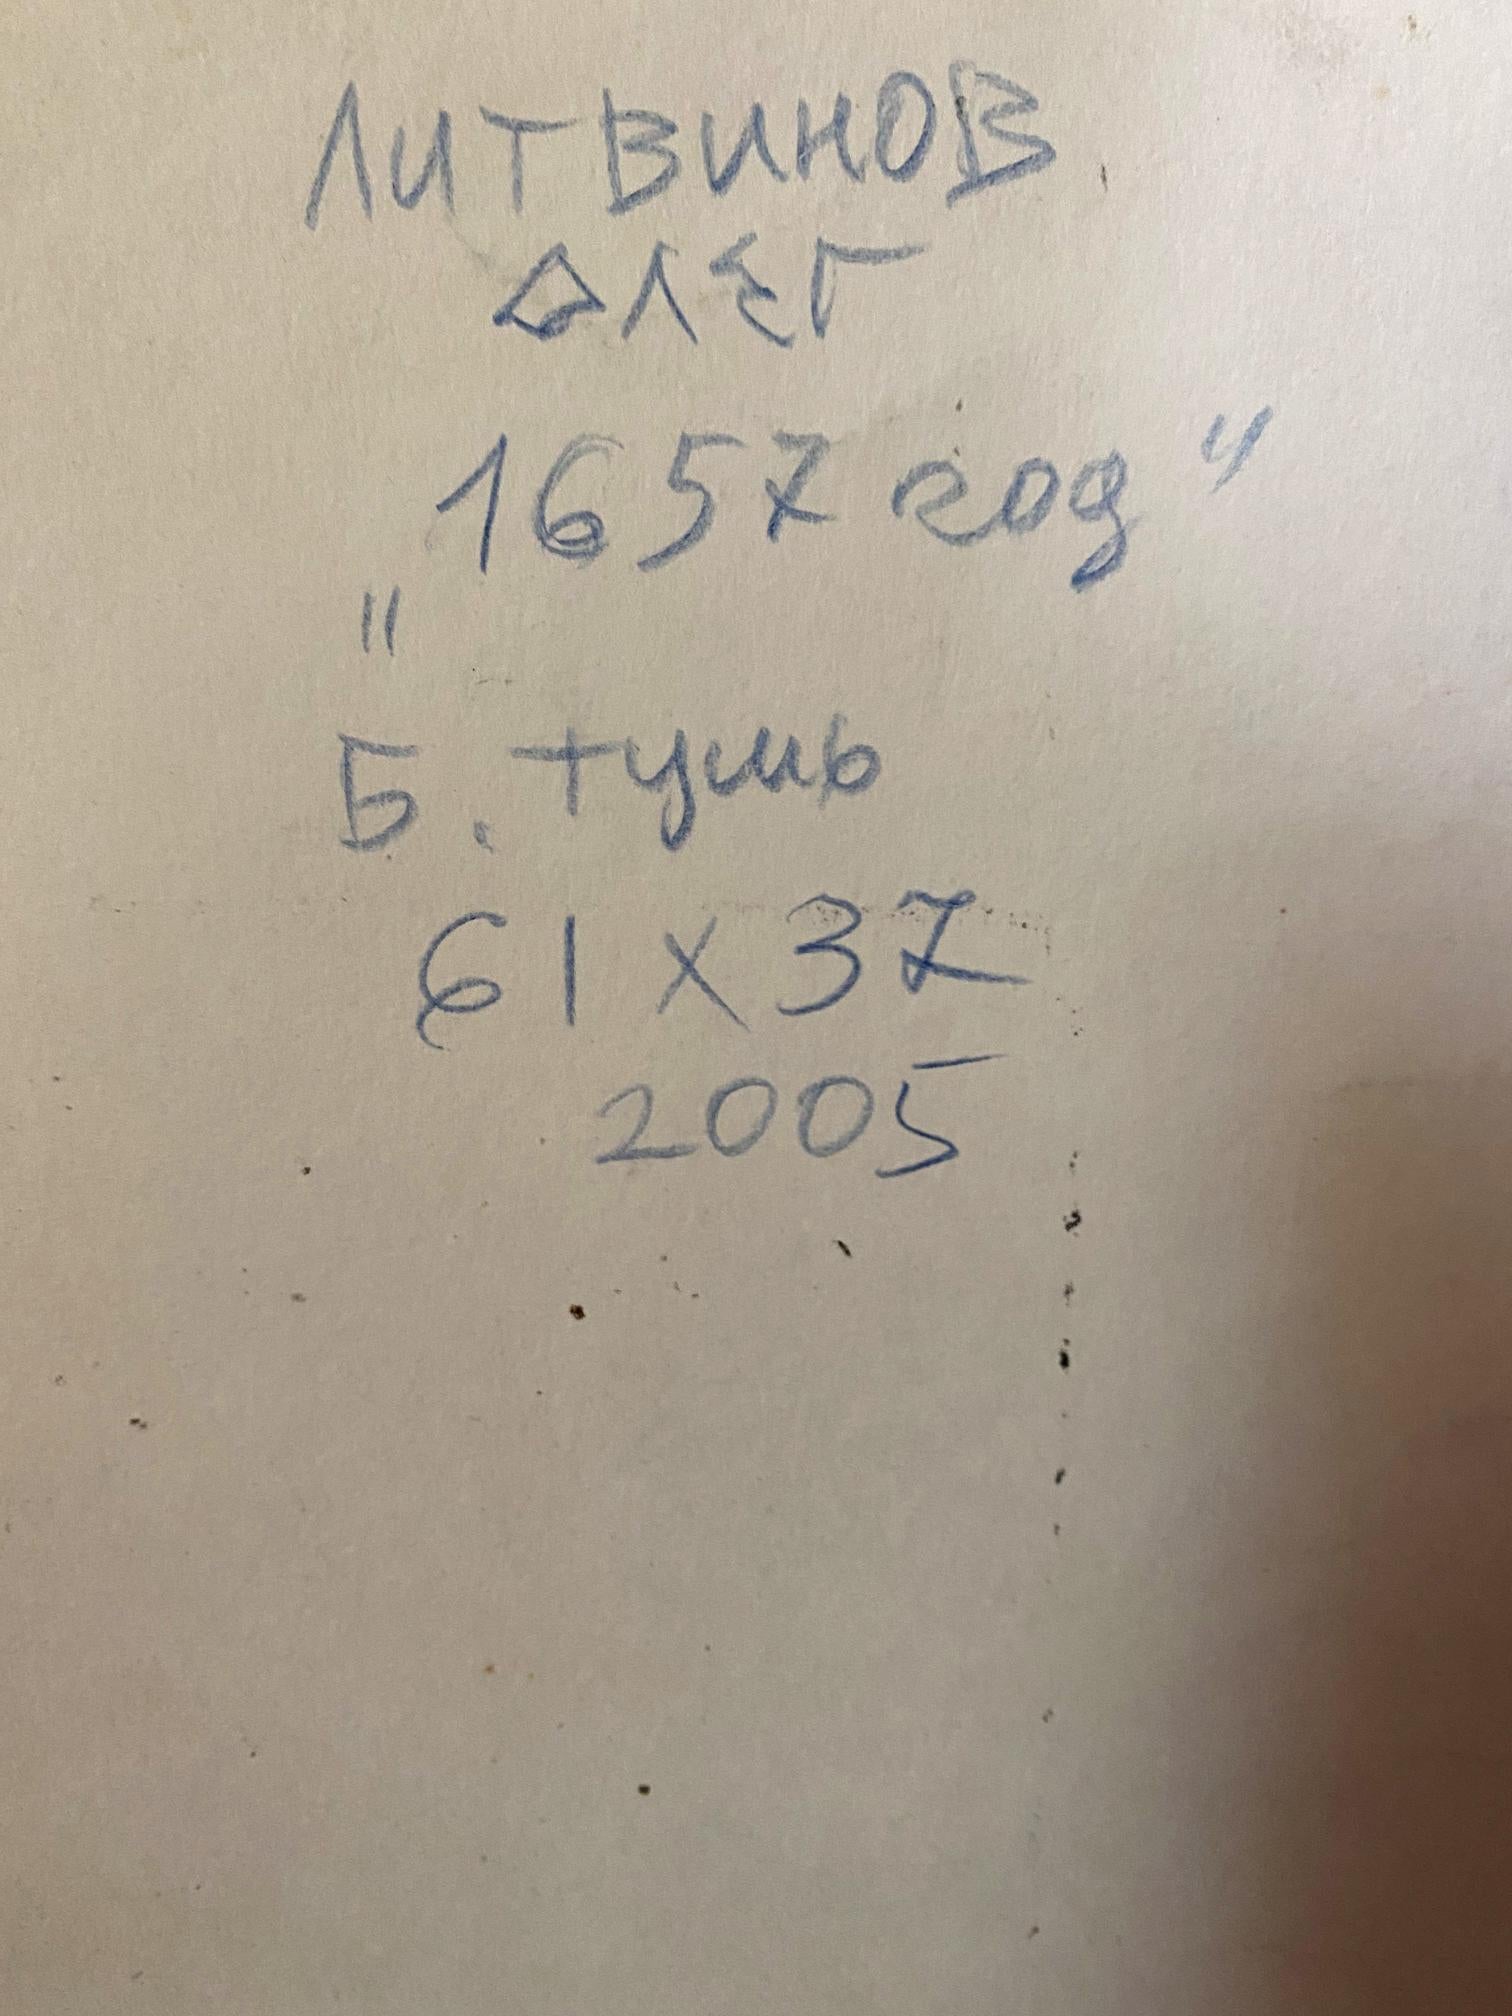 ЛИТВИНОВ
ОЛЕГ
„1657 год"
Б. тушь
61 x 37
2005